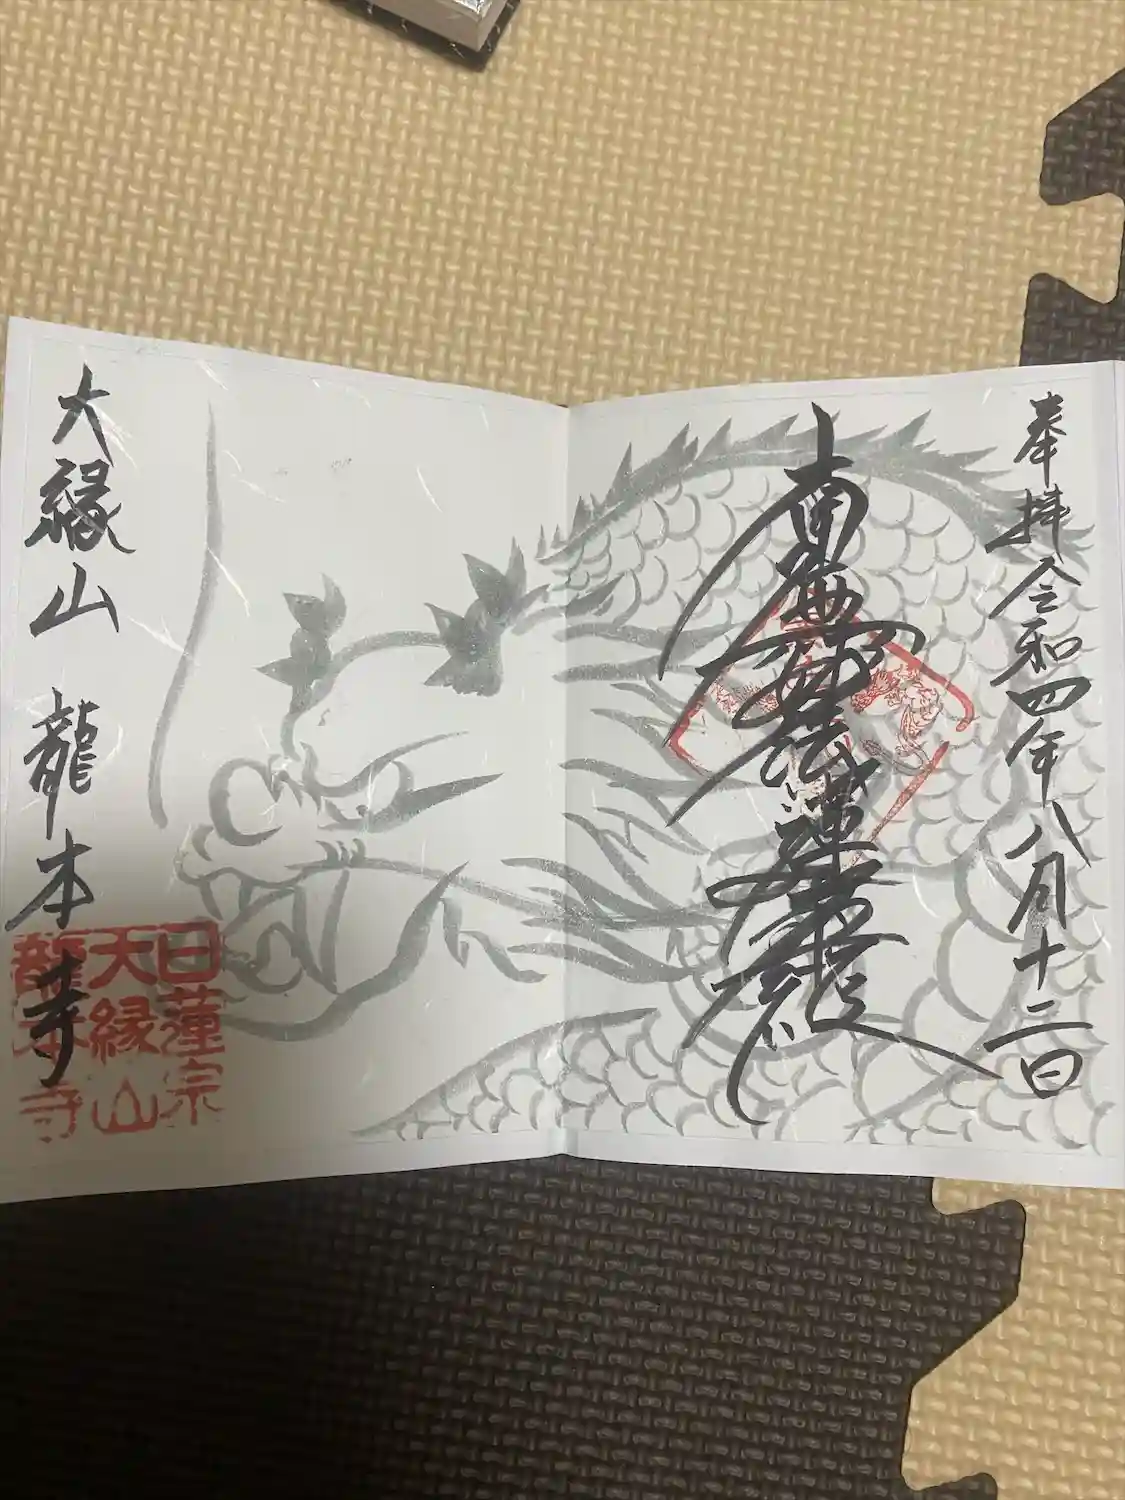 奉拝 令和四年八月十二日
南無妙法蓮華経
大縁山 龍本寺
日蓮宗
天縁山
龍本寺